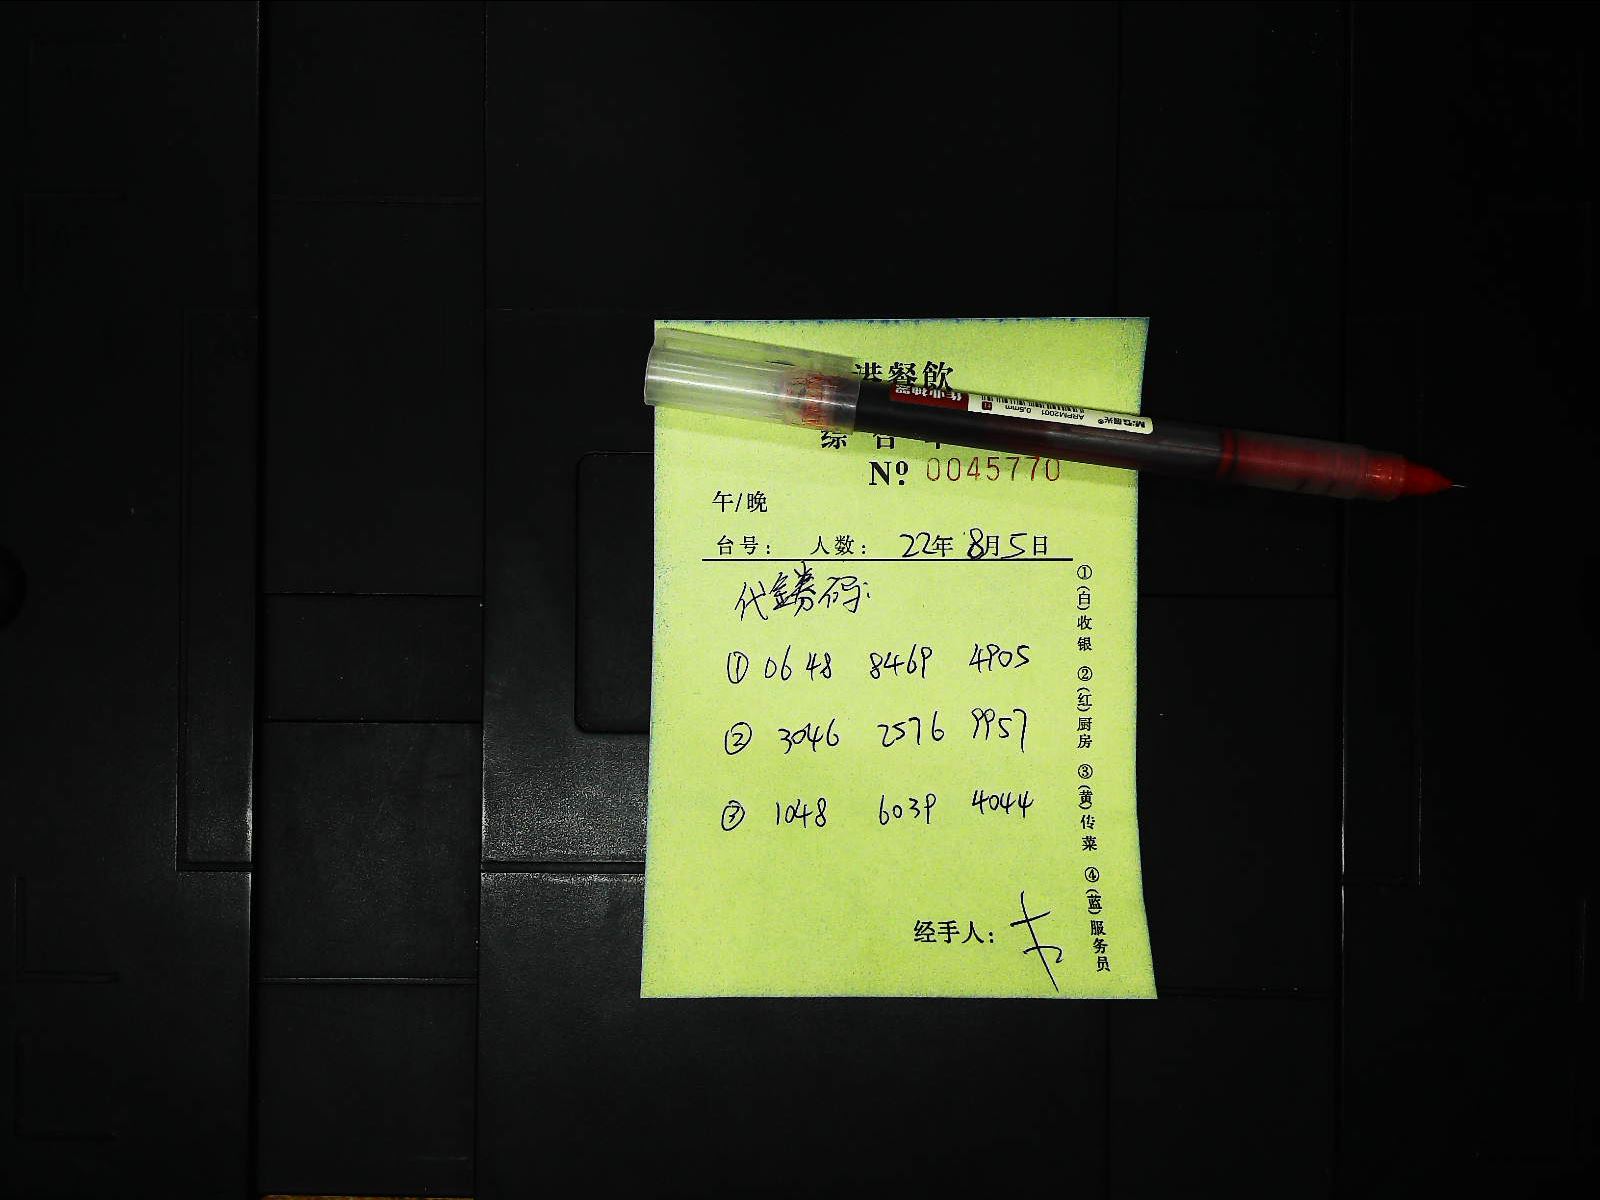 港餐飲
综合单
Nº. 0045770
午/晚
台号： 人数： 22年 8月5日
代金券码:
① 0648 8469 4905
② 3046 2576 9957
③ 1048 6039 4044
经手人：
①(白)收银 ②(红)厨房 ③(黄)传菜 ④(蓝)服务员
作业神器
0.5mm
ARPM2001
M&G晨光®